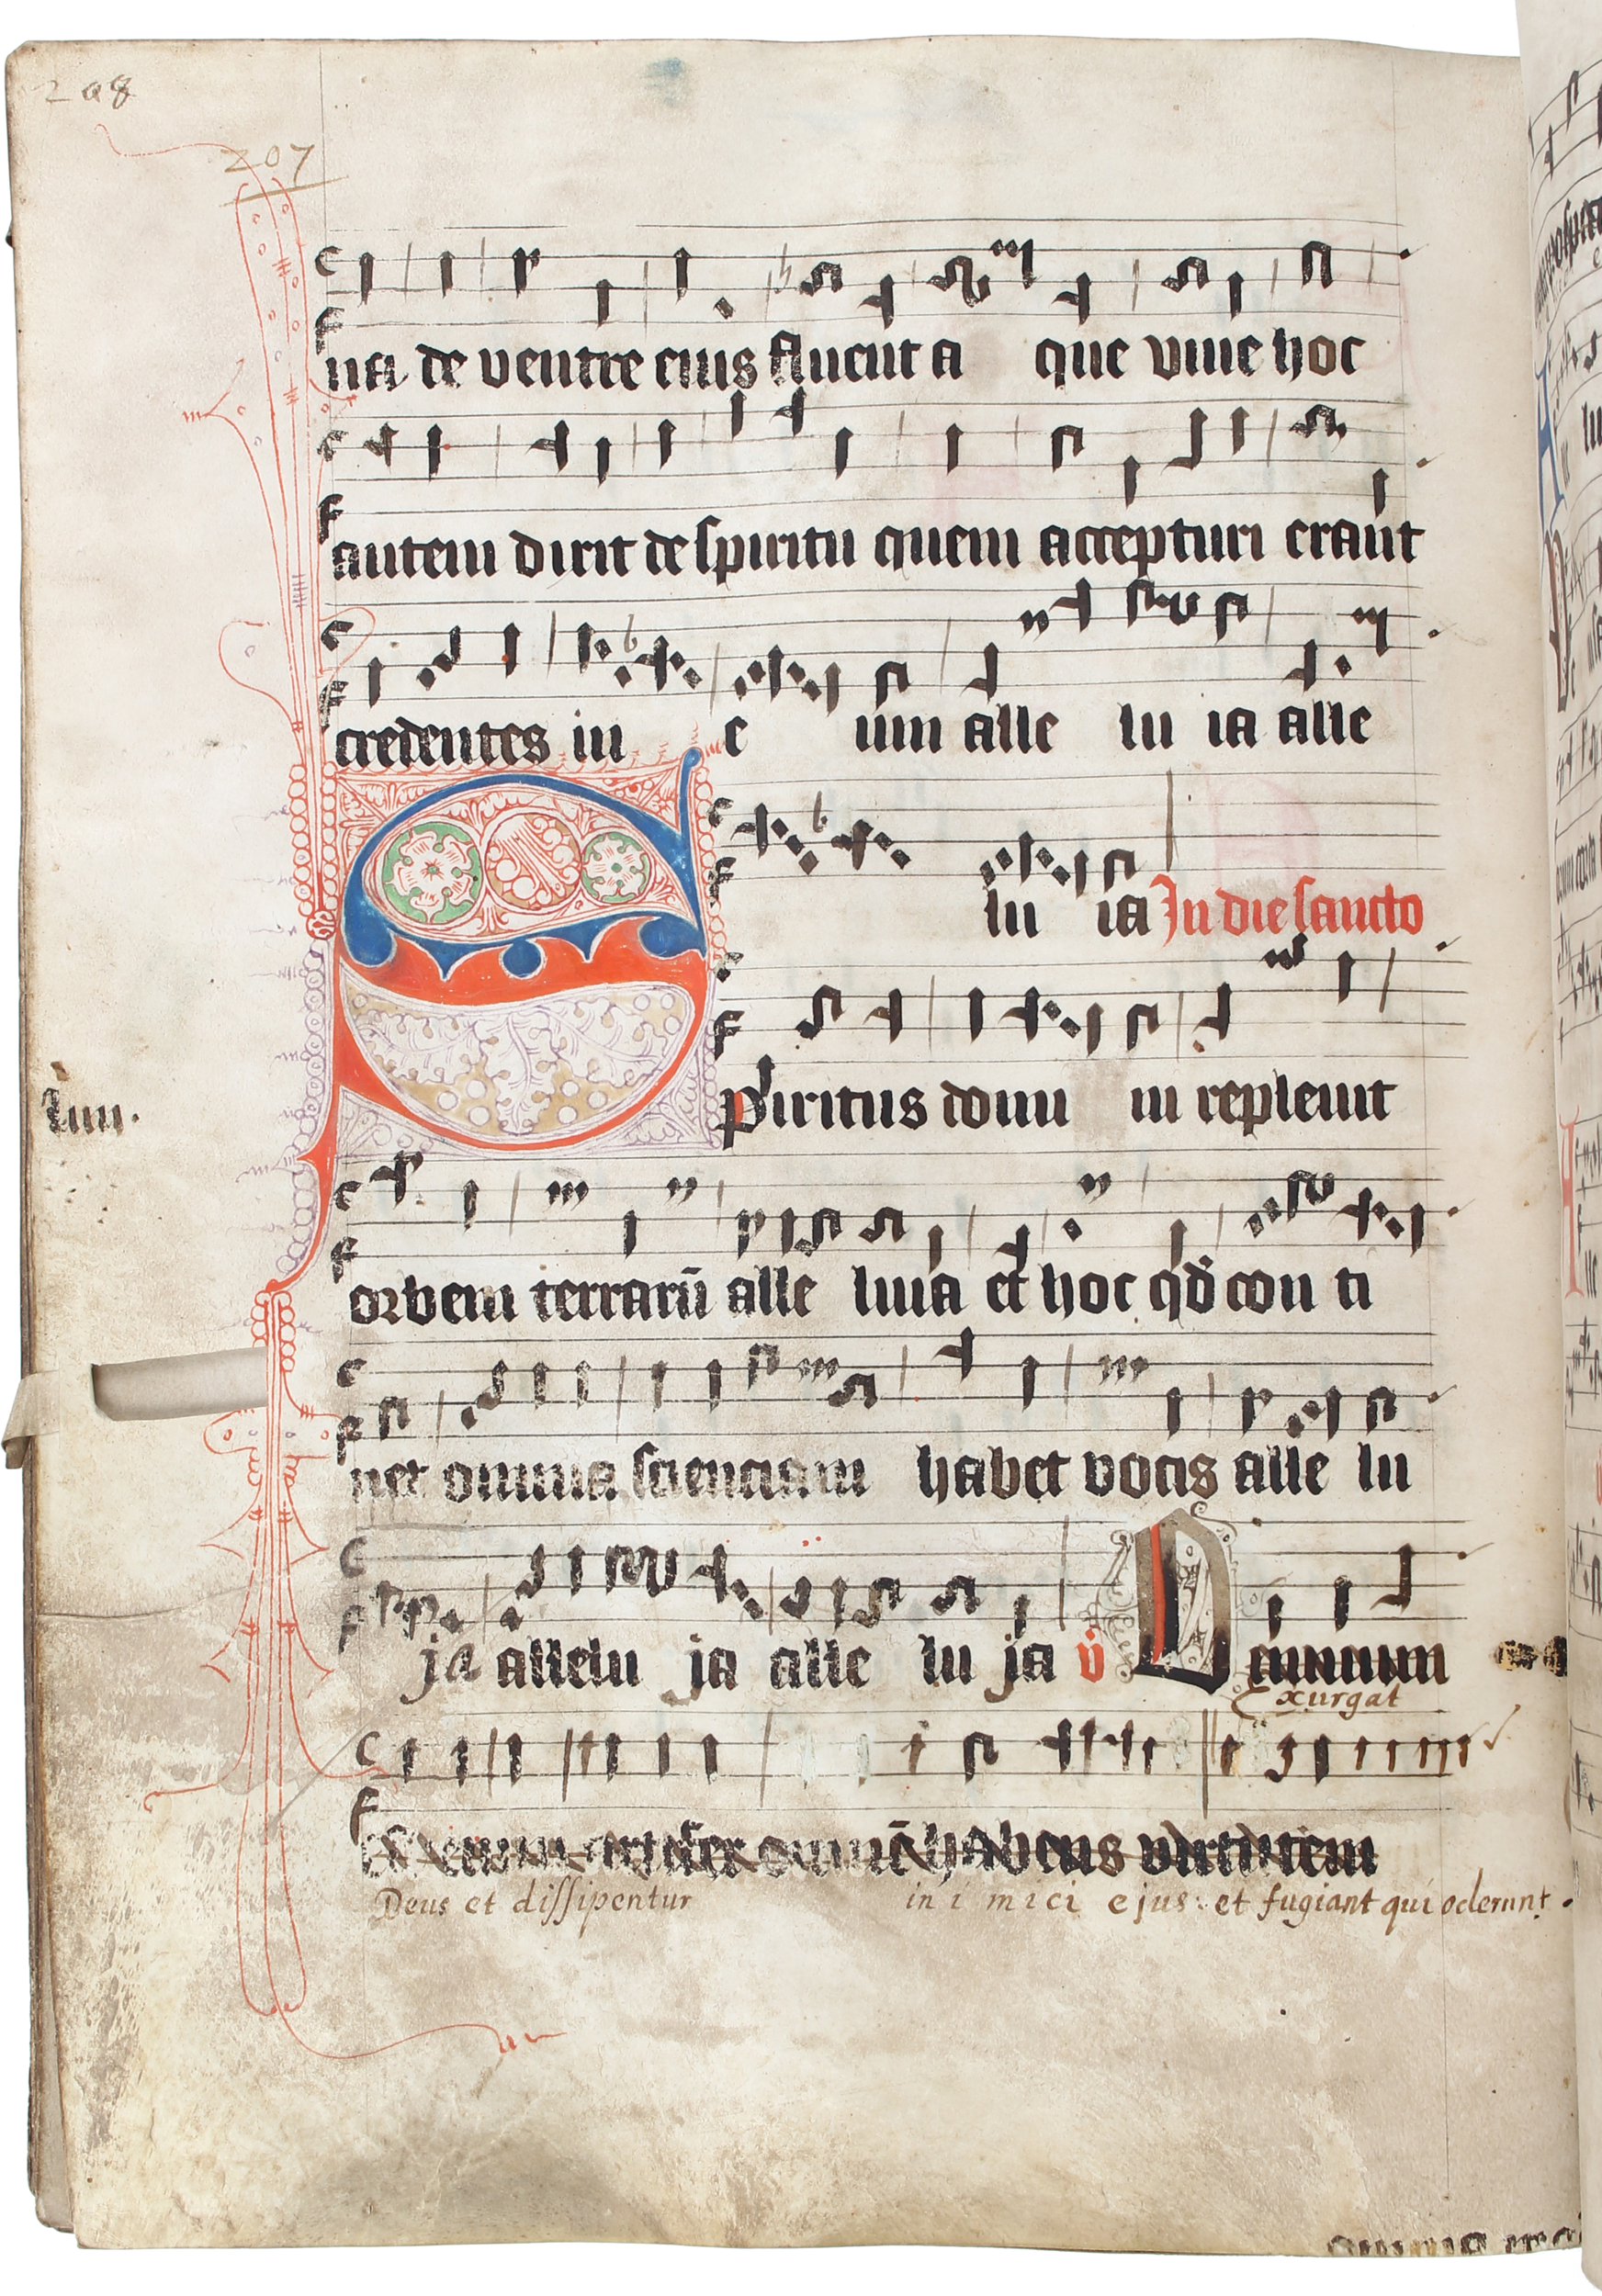 208
207
na de ventre eius fluent a que viue hoc
autem dixit de spiritu quem accepturi erant
credentes in e um alle lu ia alle
lu ia In die sancto
Spiritus domi ni repleuit
orbem terrarū alle luia et hoc qđ con ti
net omnia scienciam habet vocis alle lu
ja allelu ja alle lu ja v̈
Exurgat
artifex omnē habens virtutem
Deus et dissipentur in i mici ejus: et fugiant qui oderunt.